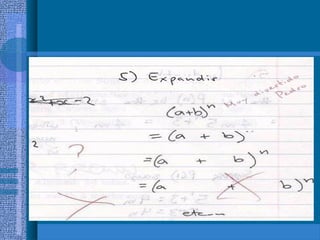 5) Expandir
x²+x-2
(a+b)ⁿ Muy divertido Pedro
= (a + b)ⁿ
2
?
=(a + b)ⁿ
=(a + b)ⁿ
etc...